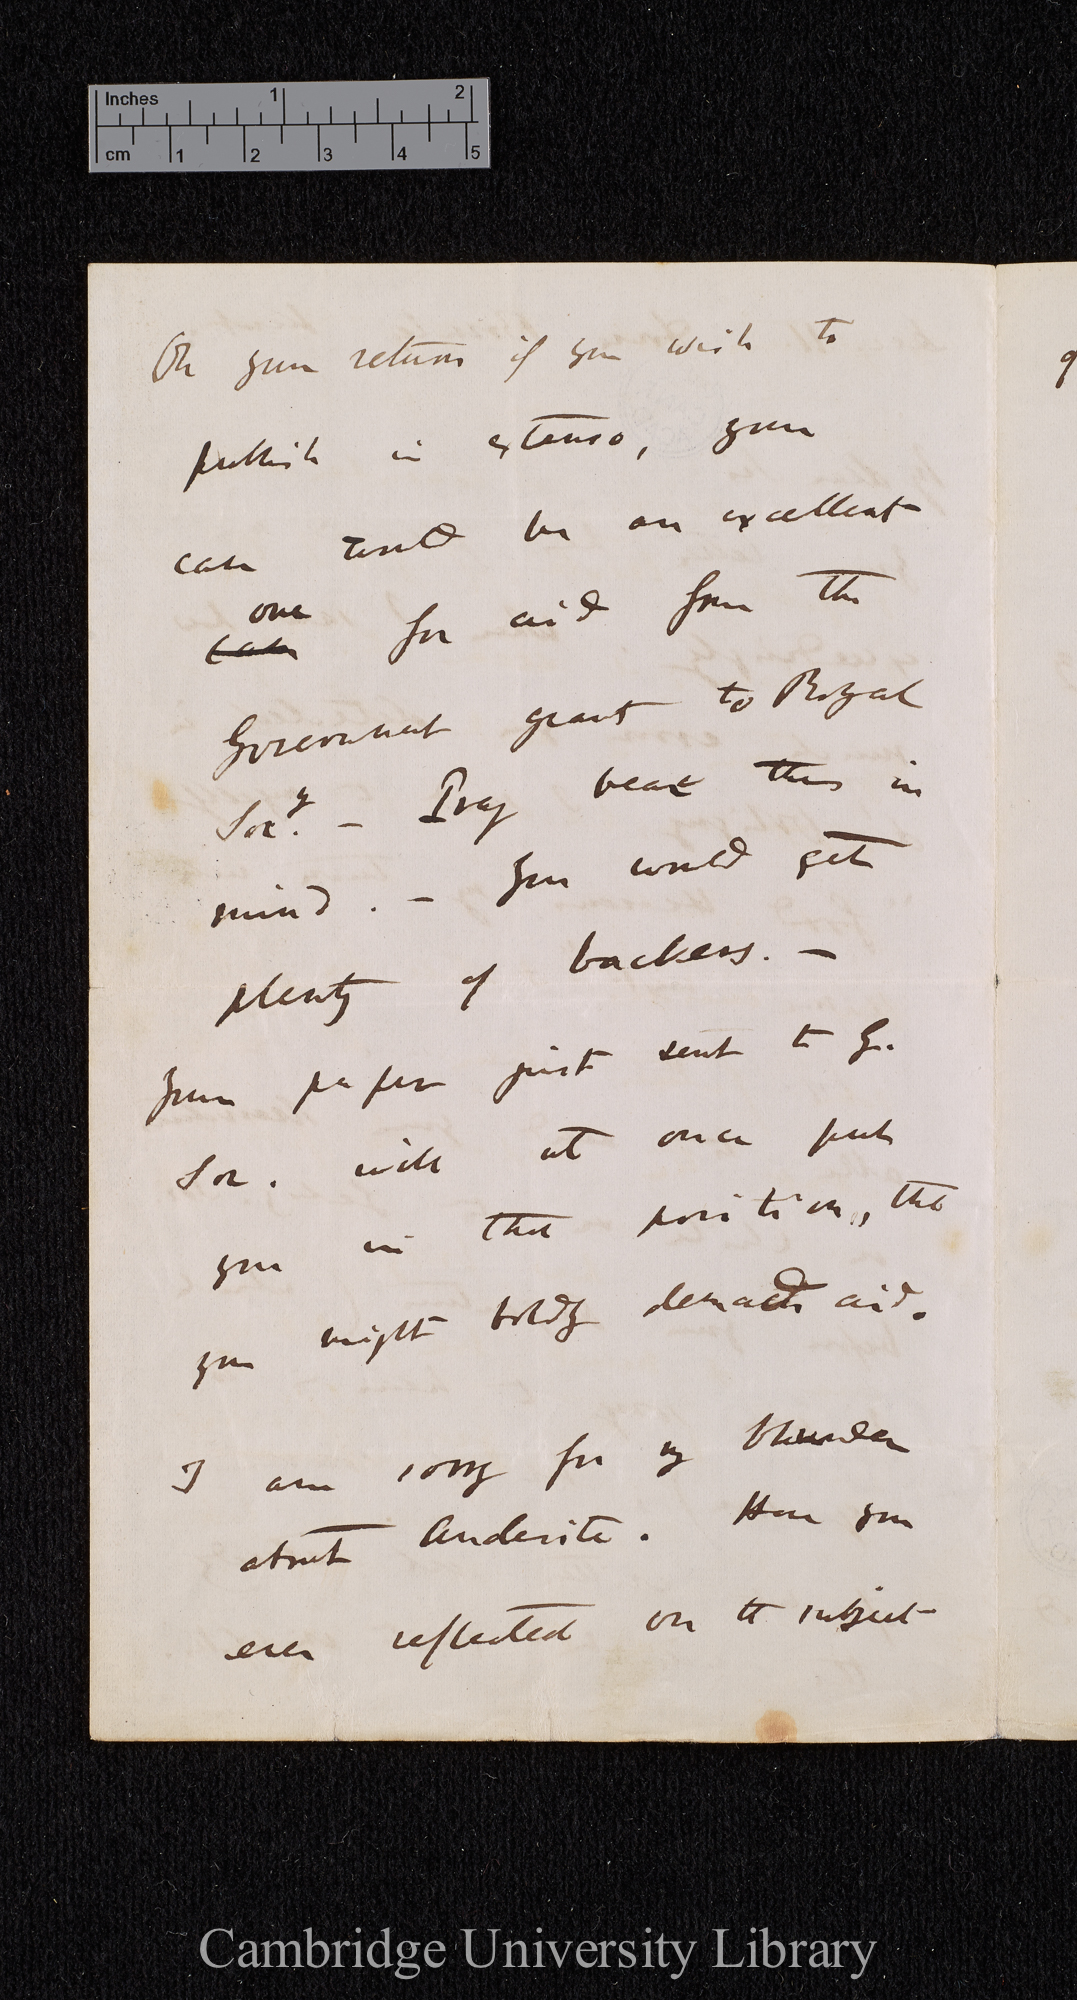 Inches 1 2
cm 1 2 3 4 5
On your return if you wish to
publish in extenso, your
case would be an excellent
one
case for aid from the
Government grant to Royal
Socy. — Pray bear this in
mind. — You would get
plenty of backers. —
Your paper just sent to G.
Soc. will at once put
you in that position, that
you might boldly demand aid.
I am sorry for my blunder
about Andesite. Have you
ever reflected on the subject
Cambridge University Library